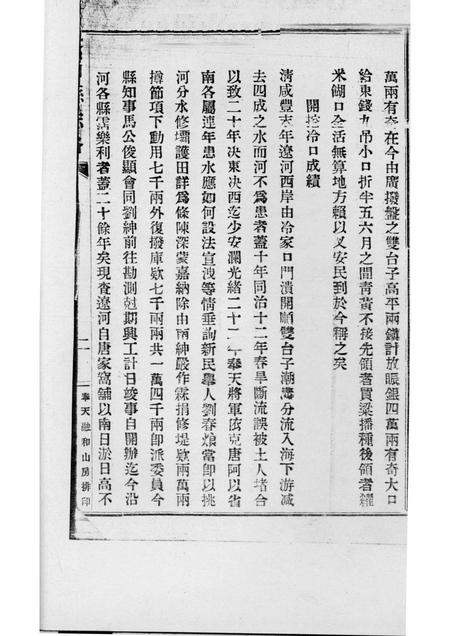 萬兩有奇在今由廣撥盤之雙台子高平兩鎮計放賑銀四萬兩有奇大口
給東錢九吊小口折半五六月之間青黃不接先領者買粱播種後領者糴
米餬口全活無算地方賴以乂安民到於今稱之矣
開挖冷口成績
清咸豐末年遼河西岸由冷家口門潰開順雙台子潮溝分流入海下游減
去四成之水而河不爲患者蓋十年同治十二年春旱斷流誤被土人堵合
以致二十年決東決西迄少安瀾光緒二十二年奉天將軍依克唐阿以省
南各屬連年患水應如何設法宣洩等情垂詢新民舉人劉春烺當即以挑
河分水修壩護田詳爲條陳深蒙嘉納除由兩紳嚴作霖捐修堤欵兩萬兩
撙節項下動用七千兩外復撥庫欵七千兩兩共一萬四千兩即派委員今
縣知事馬公俊顯會同劉紳前往勘測剋期興工計日竣事自開辦迄今沿
河各縣霑樂利者蓋二十餘年矣現查遼河自唐家窩舖以南日淤日高不
二一
奉天融和山房排印